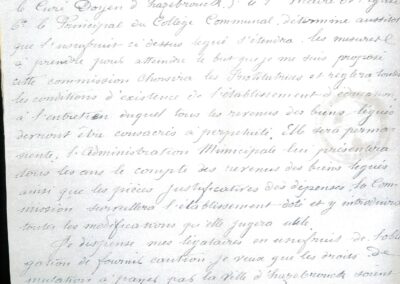 le Curé Doyen d'hazebrouck, 5°
6° le Principal du Collège Communal, détermine aussitôt
que l'usufruit ci dessus legué s'étendra. les mesures
à prendre pour atteindre le but que je me suis proposé
cette commission choisira les Instituteurs et règlera toutes
les conditions d'existence de l'établissement
à l'entretien duquel tous les revenus des biens légués
devront être consacrés à perpétuité. Elle sera perma-
nente, l'Administration Municipale lui présentera
tous les ans le compte des revenus des biens légués
ainsi que les pièces justificatives des dépenses. la Com-
mission surveillera l'établissement doté et y introduira
toutes les modifications qu'elle jugera utile.
Je dispense mes légataires en usufruit de l'obli
gation de fournir caution je veux que les droits de
mutation à payer par la Ville d'hazebrouck soient